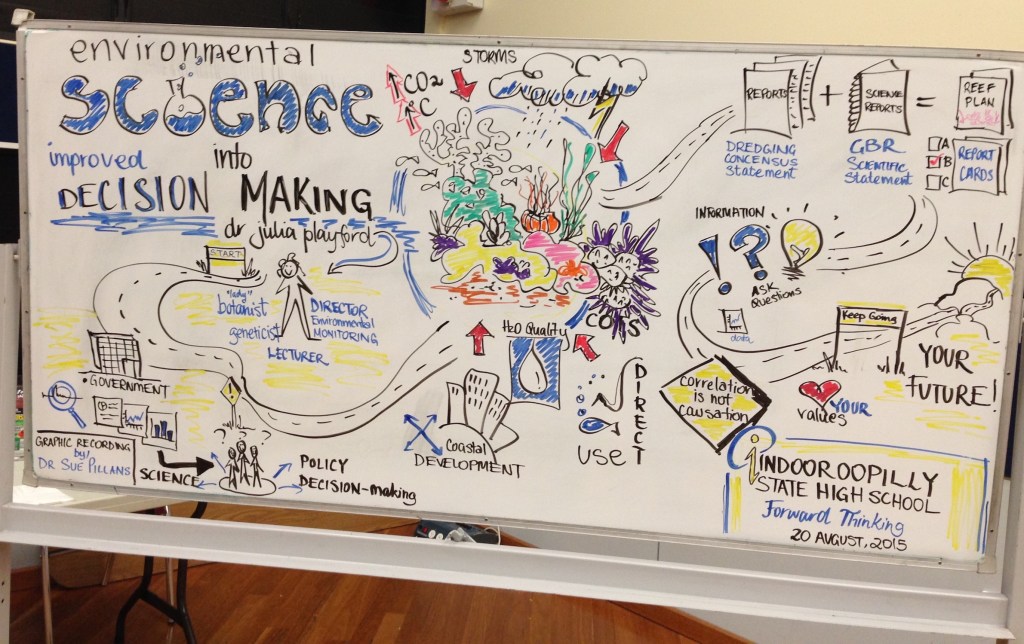 environmental
science
improved into
DECISION MAKING
dr julia playford
START
"lady"
botanist
geneticist
DIRECTOR
Environmental
MONITORING
LECTURER
• GOVERNMENT
GRAPHIC RECORDING
by:
DR SUE PILLANS
SCIENCE
? ? ?
POLICY
DECISION-making
CO2
°C
STORMS
COTS
H2O Quality
Coastal
DEVELOPMENT
DIRECT
USE
REPORTS
+
SCIENCE
REPORTS
=
REEF
PLAN
DREDGING
CONCENSUS
Statement
GBR
Scientific
Statement
A
B
C
REPORT
CARDS
INFORMATION
! ?
ASK
Questions
data
Keep Going
correlation
is not
causation
values YOUR
YOUR
FUTURE!
i
INDOOROOPILLY
STATE HIGH SCHOOL
Forward Thinking
20 AUGUST, 2015